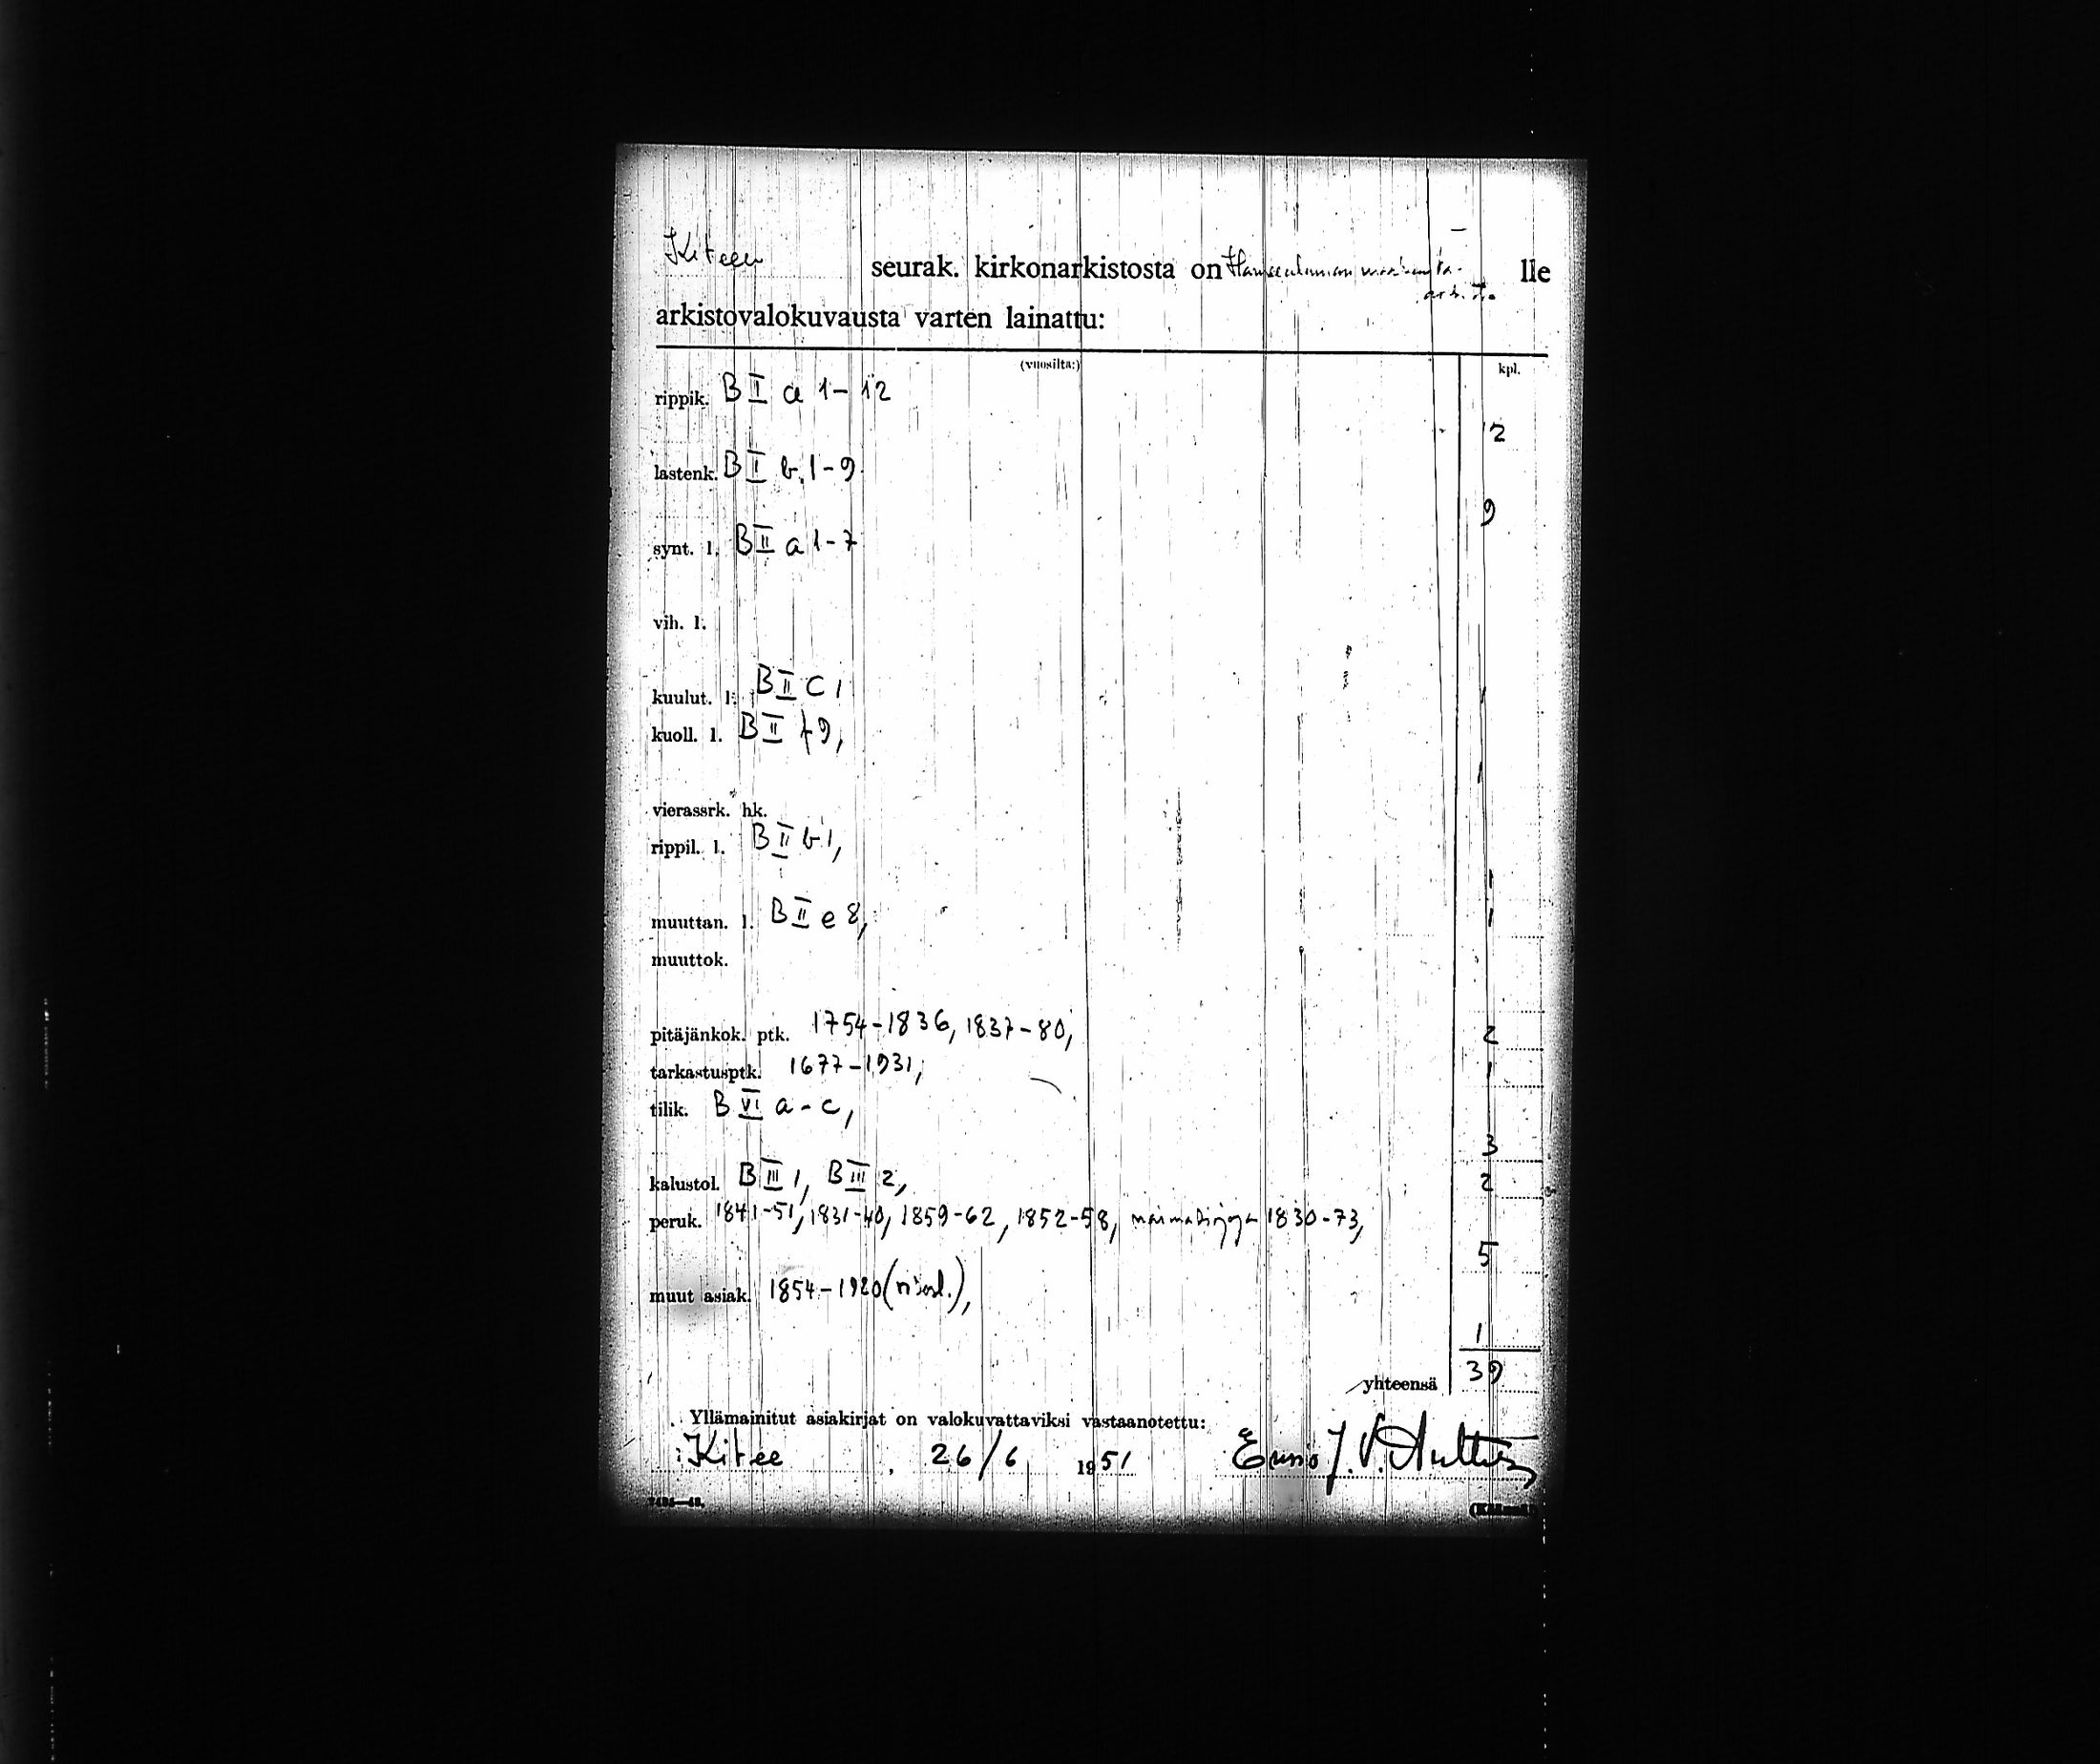 Kiteen seurak. kirkonarkistosta on Hämeenlinnan maakunta- lle
arkistovalokuvausta varten lainattu:
(vuosilta:) kpl.
rippik. B I a 1-12
12
lastenk. B I b 1-9
9
synt. l. B II a 1-7
vih. l.
kuulut. l. B II c 1 1
kuoll. l. B II f 9,
1
vierassrk. hk.
rippil. l. B II b 1,
1
muuttan. l. B II e 8, 1
muuttok.
pitäjänkok. ptk. 1754-1836, 1837-80, 2
tarkastusptk. 1677-1931, 1
tilik. B VI a-c,
3
kalustol. B III 1, B III 2, 2
peruk. 1841-51, 1831-40, 1859-62, 1852-58, 1830-73,
5
muut asiak. 1854-1920
1
yhteensä 39
Yllämainitut asiakirjat on valokuvattaviksi vastaanotettu:
Kitee, 26/6 1951 J. V.